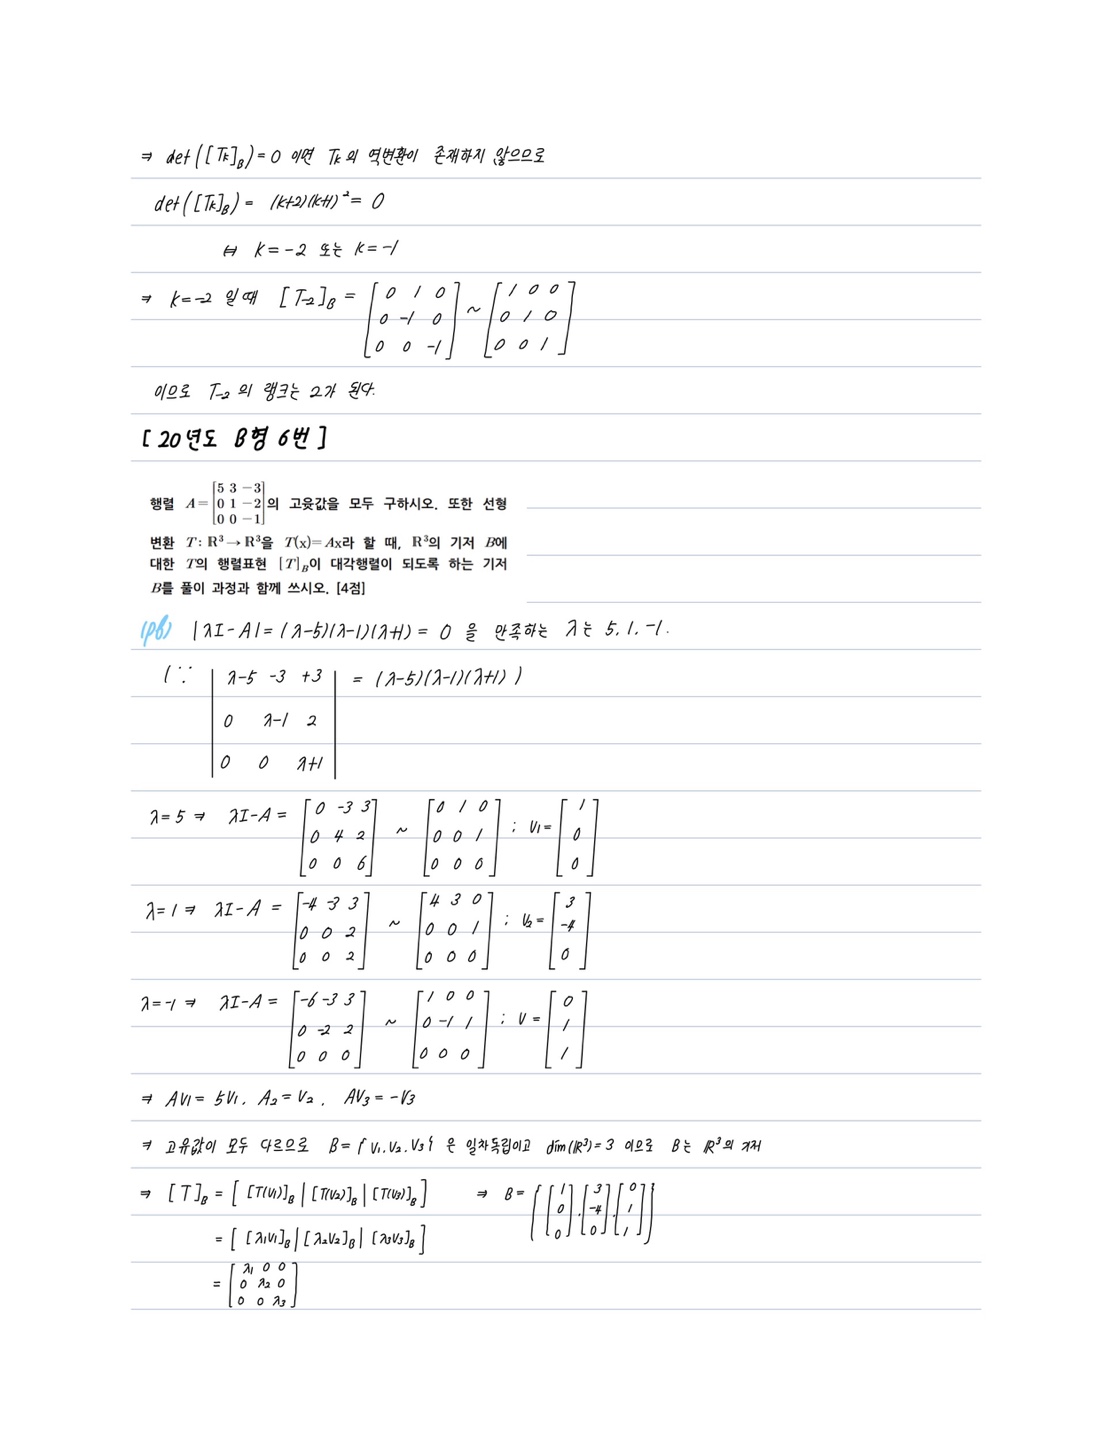 ⇒ det([Tk]_B) = 0 이면 Tk의 역변환이 존재하지 않으므로
det([Tk]_B) = (k+2)(k+1)² = 0
⇔ k = -2 또는 k = -1
⇒ k = -2 일때 [T-2]_B = [0 1 0; 0 -1 0; 0 0 -1] ~ [1 0 0; 0 1 0; 0 0 1]
이므로 T-2 의 랭크는 2가 된다.
[20년도 B형 6번]
행렬 A = [5 3 -3; 0 1 -2; 0 0 -1]의 고윳값을 모두 구하시오. 또한 선형
변환 T : ℝ³ → ℝ³을 T(x) = Ax라 할 때, ℝ³의 기저 B에
대한 T의 행렬표현 [T]_B이 대각행렬이 되도록 하는 기저
B를 풀이 과정과 함께 쓰시오. [4점]
(pf) |λI - A| = (λ-5)(λ-1)(λ+1) = 0 을 만족하는 λ는 5, 1, -1.
(∵ |λ-5 -3 +3; 0 λ-1 2; 0 0 λ+1| = (λ-5)(λ-1)(λ+1))
λ = 5 ⇒ λI - A = [0 -3 3; 0 4 2; 0 0 6] ~ [0 1 0; 0 0 1; 0 0 0] ; V1 = [1; 0; 0]
λ = 1 ⇒ λI - A = [-4 -3 3; 0 0 2; 0 0 2] ~ [4 3 0; 0 0 1; 0 0 0] ; V2 = [3; -4; 0]
λ = -1 ⇒ λI - A = [-6 -3 3; 0 -2 2; 0 0 0] ~ [1 0 0; 0 -1 1; 0 0 0] ; V = [0; 1; 1]
⇒ AV1 = 5V1, A2 = V2, AV3 = -V3
⇒ 고유값이 모두 다르므로 B = {V1, V2, V3} 은 일차독립이고 dim(ℝ³) = 3 이므로 B는 ℝ³의 기저
⇒ [T]_B = [[T(V1)]_B | [T(V2)]_B | [T(V3)]_B] ⇒ B = {[1; 0; 0], [3; -4; 0], [0; 1; 1]}
= [[λ1V1]_B | [λ2V2]_B | [λ3V3]_B]
= [λ1 0 0; 0 λ2 0; 0 0 λ3]